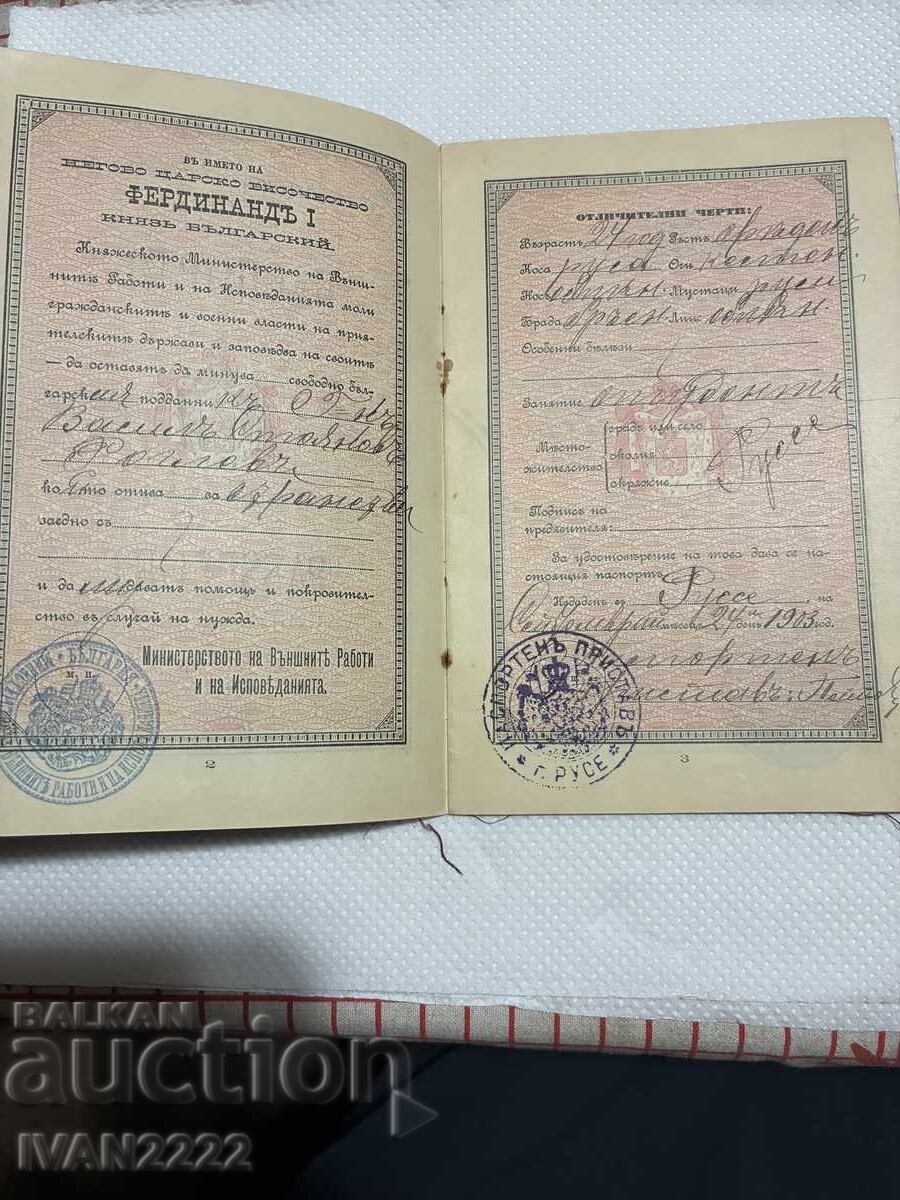 ВЪ ИМЕТО НА
НЕГОВО ЦАРСКО ВИСОЧЕСТВО
ФЕРДИНАНДЪ I
КНЯЗЬ БЪЛГАРСКИЙ.
Княжеското Министерство на Външ-
нитѣ Работи и на Исповѣданията моли
гражданскитѣ и военни власти на прия-
телскитѣ държави и заповѣдва на своитѣ
— да оставятъ да минува свободно бъл-
гарския подданникъ Г-нъ
Василъ Стояновъ
което отива за
заедно съ
и да му даватъ помощь и покровител-
ство въ случай на нужда.
Министерството на Външнитѣ Работи
и на Исповѣданията.
М. П.
БЪЛГАРИЯ
РАБОТИ И НА
2
ОТЛИЧИТЕЛНИ ЧЕРТИ:
Възрасть 24 год Ръстъ срѣденъ
Коса руса Очи
Носъ Мустаци руси
Брада Лице
Особенни бѣлѣзи
Занятие студентъ
Мѣсто-
жителство
градъ или село
околия
окрѫжие
Руссе
Подпись на
предявителя:
За удостовѣрение на това дава се на-
стоящия паспортъ.
Издаденъ въ Руссе на
Септемврий месецъ 24 день 1903 год.
Приставъ:
ПАСПОРТЕНЪ ПРИСТАВЪ
* Г. РУСЕ *
3
BALKAN
auction
IVAN2222